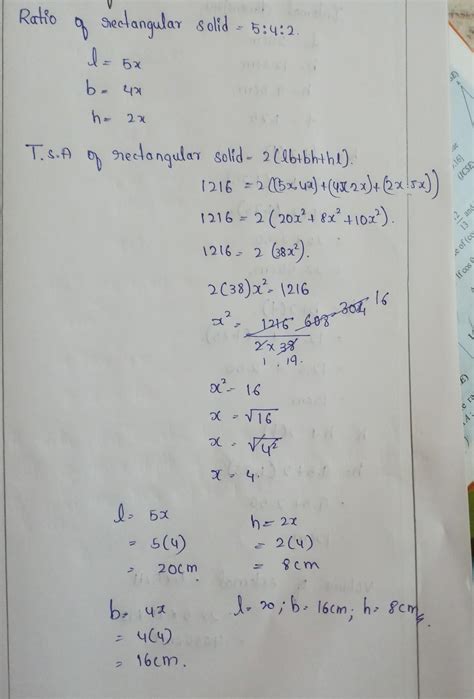 Ratio of rectangular solid = 5:4:2.
l = 5x
b = 4x
h = 2x
T.S.A of rectangular solid = 2(lb+bh+hl).
1216 = 2((5x.4x)+(4x.2x)+(2x.5x))
1216 = 2(20x²+8x²+10x²).
1216 = 2(38x²).
2(38)x² = 1216
x² = 1216 608 304 16
2 x 38
1 . 19.
x² = 16
x = √16
x = √4²
x = 4.
l = 5x h = 2x
= 5(4) = 2(4)
= 20cm = 8cm
b = 4x l = 20; b = 16cm; h = 8cm.
= 4(4)
= 16cm.